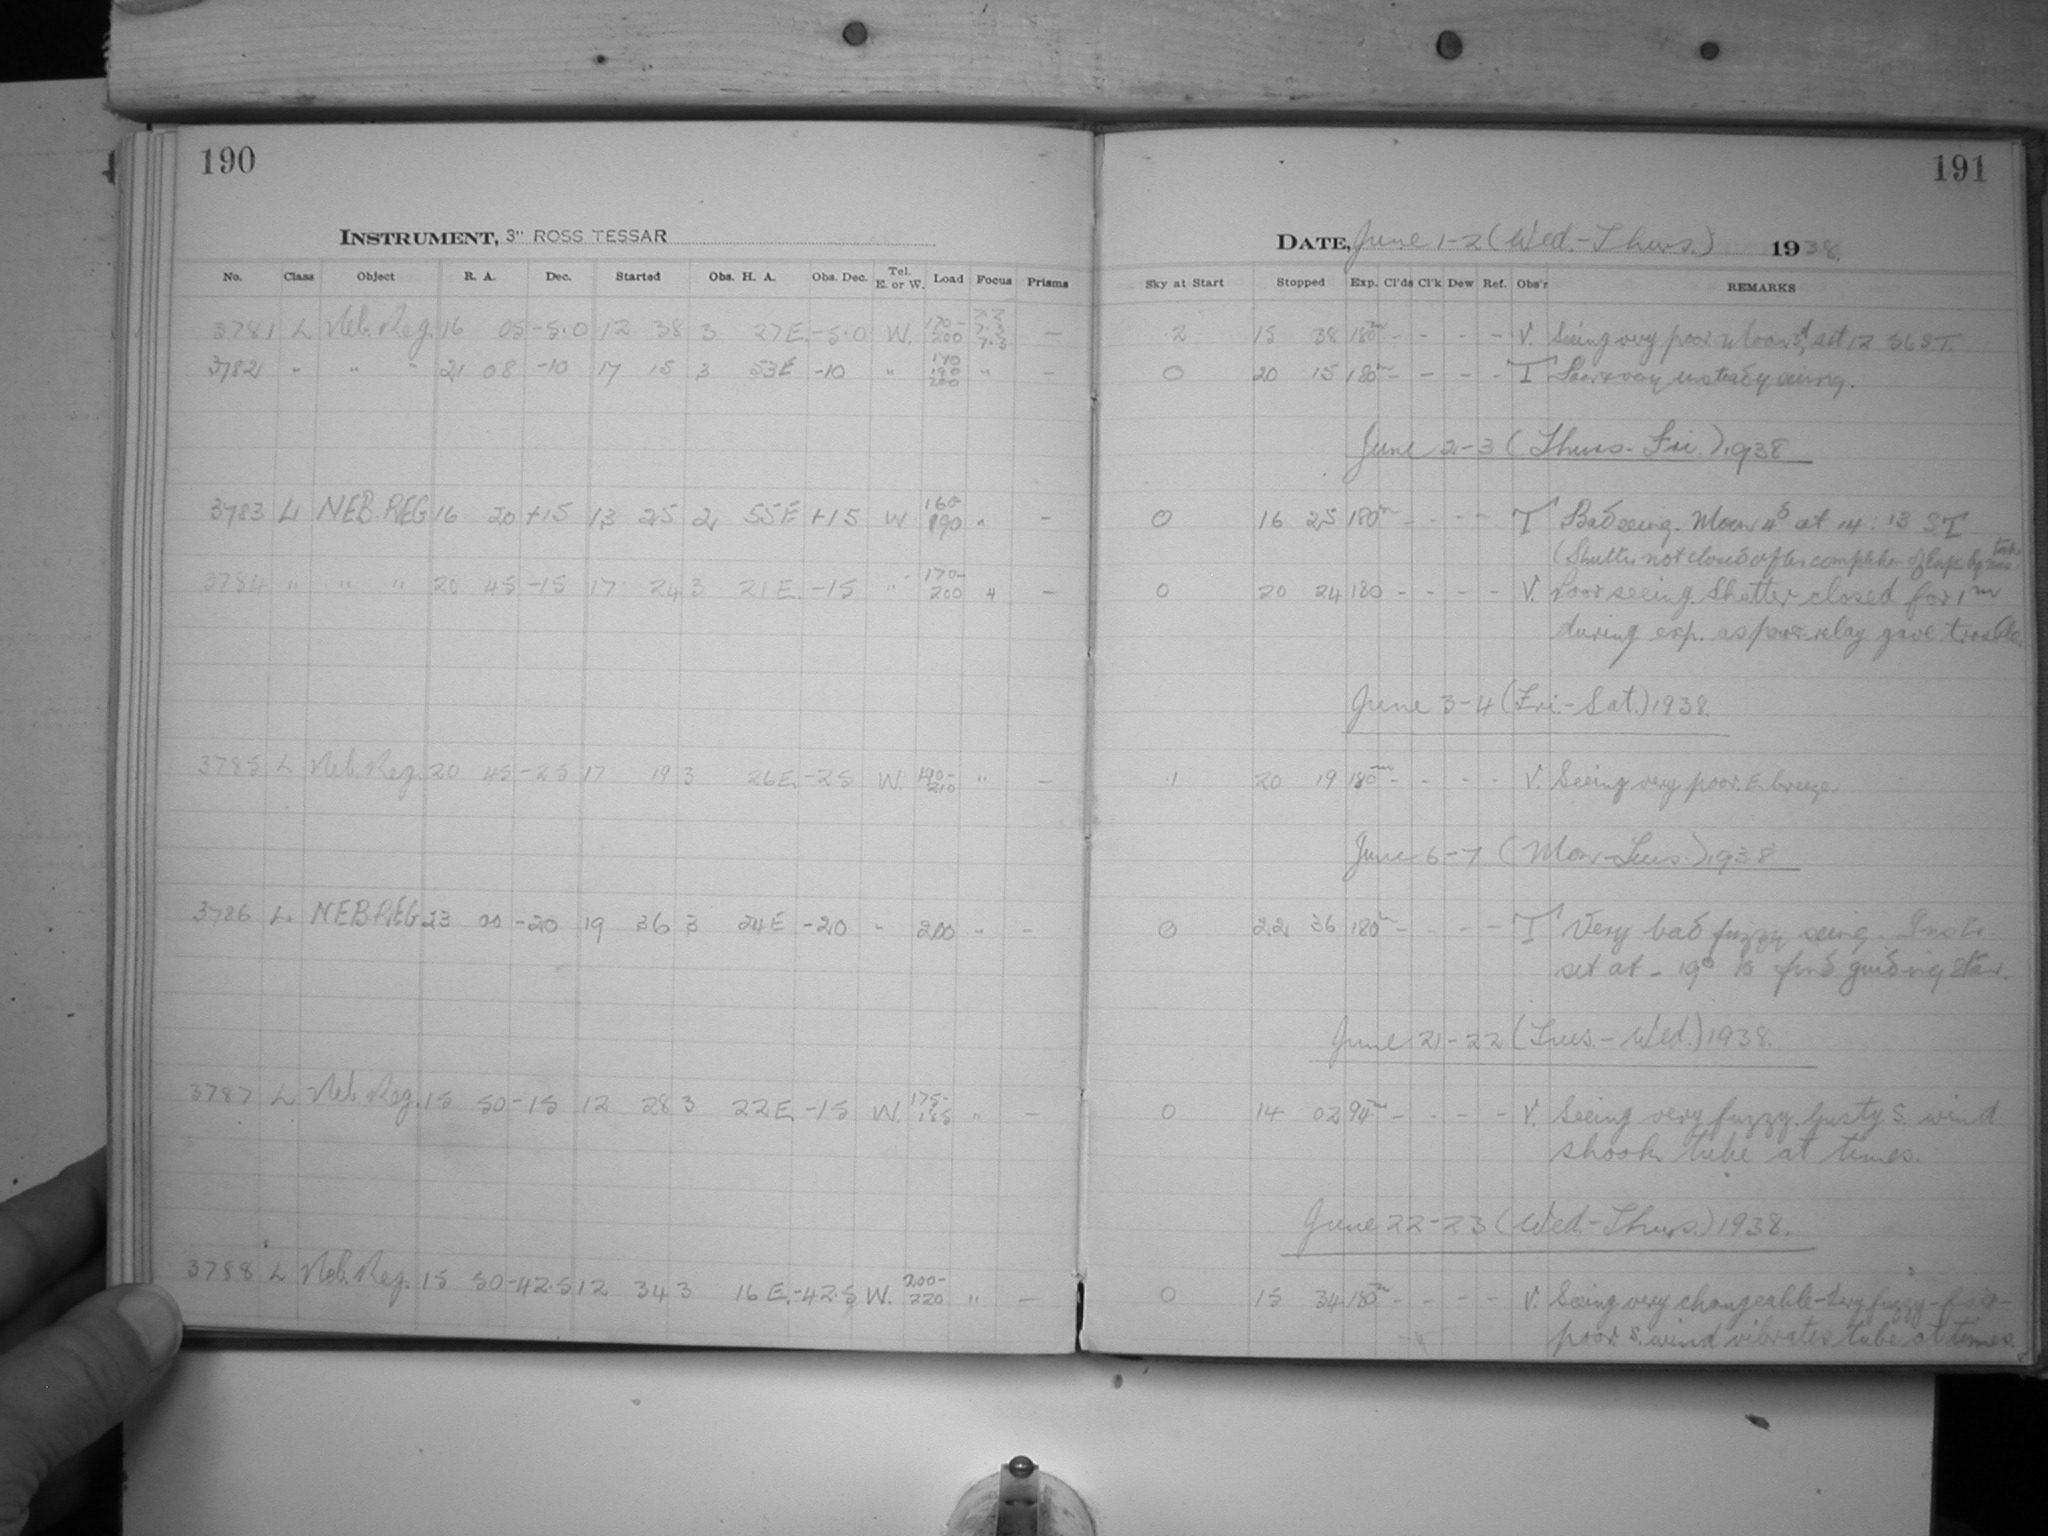 190
INSTRUMENT, 3" ROSS TESSAR
No. Class Object R. A. Dec. Started Obs. H. A. Obs. Dec. Tel. E. or W. Load Focus Prisms
3781 L Neb. Reg. 16 05 -5.0 12 38 3 27 E. -5.0 W. 170-200 7.3 —
3782 " " " 21 08 -10 17 15 3 53 E -10 " 170 190 200 " —
3783 L NEB. REG 16 20 +15 13 25 2 55 E +15 W 160-190 " —
3784 " " " 20 45 -15 17 24 3 21 E. -15 " 170-200 " —
3785 L Neb. Reg. 20 45 -25 17 19 3 26 E. -25 W. 190-210 " —
3786 L. NEB. REG 23 00 -20 19 36 3 24 E -20 " 200 " —
3787 L Neb. Reg. 15 50 -15 12 28 3 22 E. -15 W. 175-185 " —
3788 L Neb. Reg. 15 50 -42.5 12 34 3 16 E. -42.5 W. 200-220 " —
191
DATE, June 1-2 (Wed.-Thurs.) 1938.
Sky at Start Stopped Exp. Cl'ds Cl'k Dew Ref. Obs'r REMARKS
.2 15 38 180m - - - - V. Seeing very poor. Moon 3d set 12 36 S.T.
0 20 15 180m - - - - T Poor & very unsteady seeing.
June 2-3 (Thurs-Fri.) 1938
0 16 25 180m - - - - T Bad seeing. Moon 4d at 14:13 ST
(Shutter not closed after completion of Exp. by
0 20 24 180 - - - - V. Poor seeing. Shutter closed for 1m
during exp. as power relay gave trouble.
June 3-4 (Fri.-Sat.) 1938.
.1 20 19 180m - - - - V. Seeing very poor. E. breeze.
June 6-7 (Mon-Tues.) 1938
0 22 36 180m - - - - T Very bad fuzzy seeing. Instr.
set at -19° to find guiding star.
June 21-22 (Tues.-Wed.) 1938.
0 14 02 94m - - - - V. Seeing very fuzzy. Gusty S. wind
shook tube at times.
June 22-23 (Wed.-Thurs.) 1938.
0 15 34 180m - - - - V. Seeing very changeable-very fuzzy-fair-
poor. S. wind vibrates tube at times.